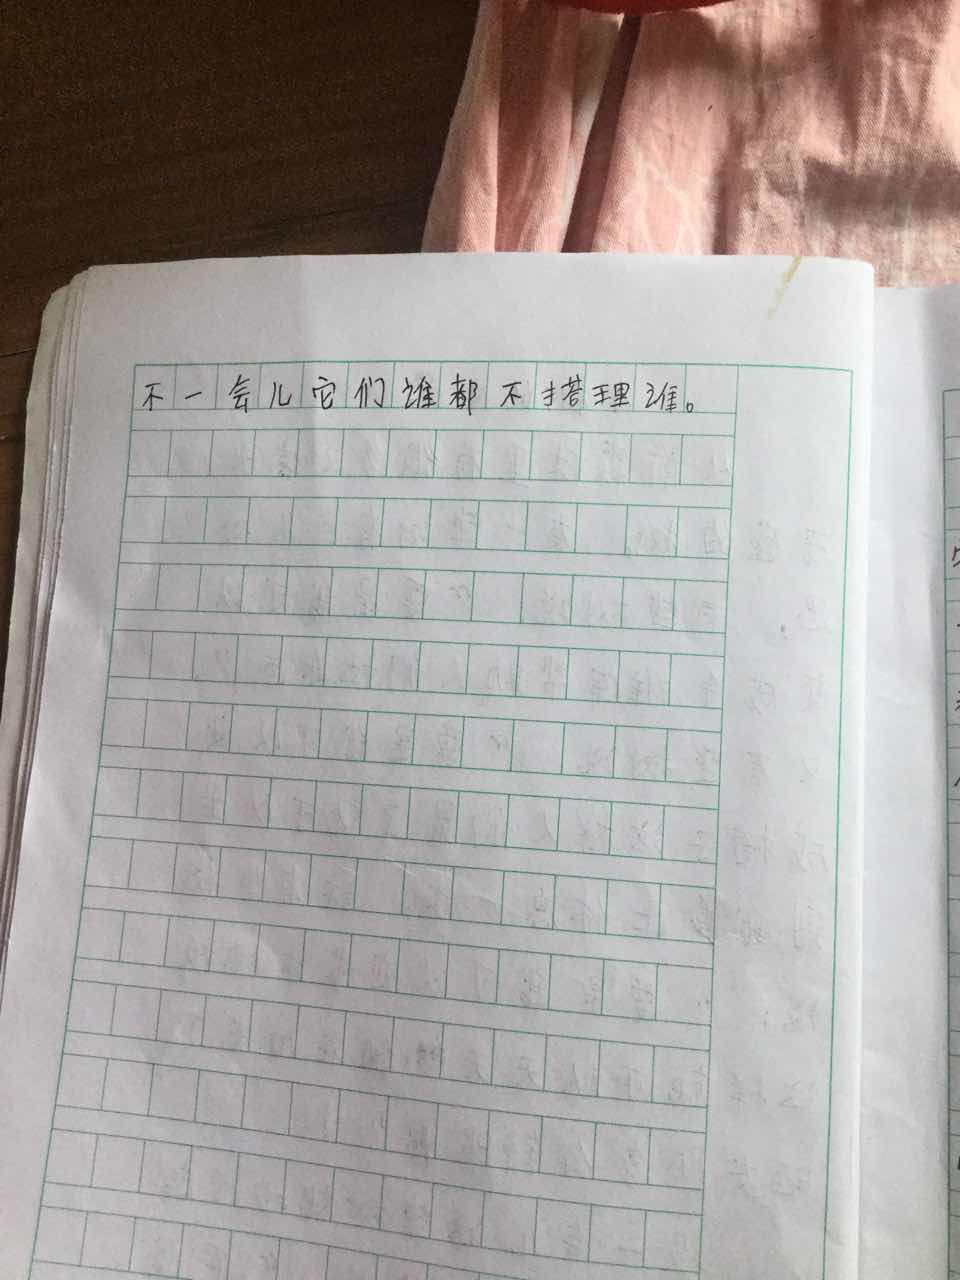 不一会儿它们谁都不搭理谁。